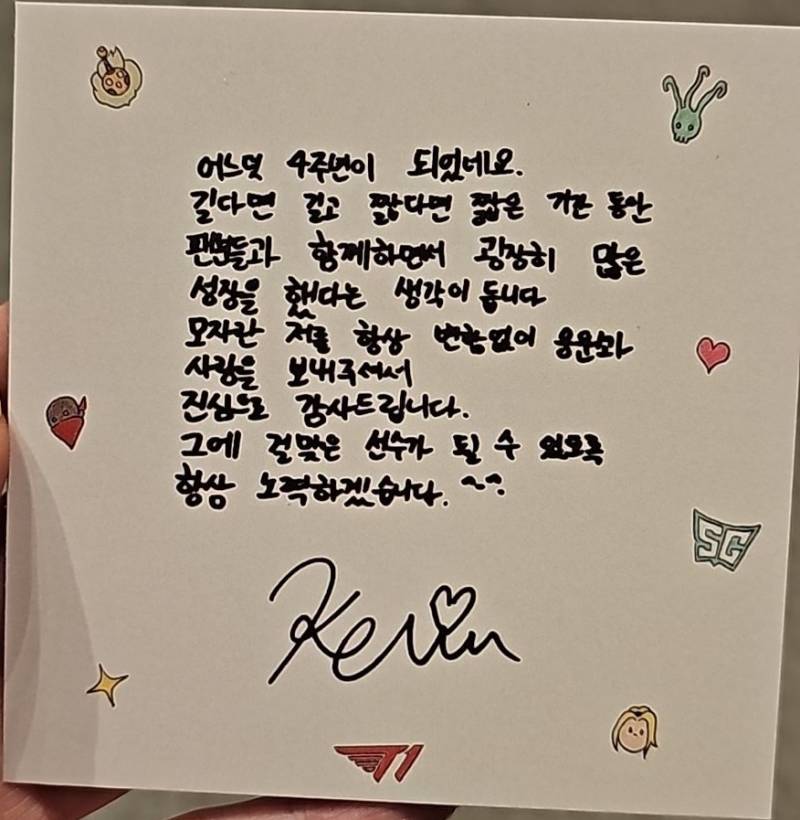 어느덧 4주년이 되었네요.
길다면 길고 짧다면 짧은 기간 동안
팬분들과 함께하면서 굉장히 많은
성장을 했다는 생각이 듭니다
모자란 저를 항상 변함없이 응원과
사랑을 보내주셔서
진심으로 감사드립니다.
그에 걸맞은 선수가 될 수 있도록
항상 노력하겠습니다. ^^.
Kevin
SG
T1